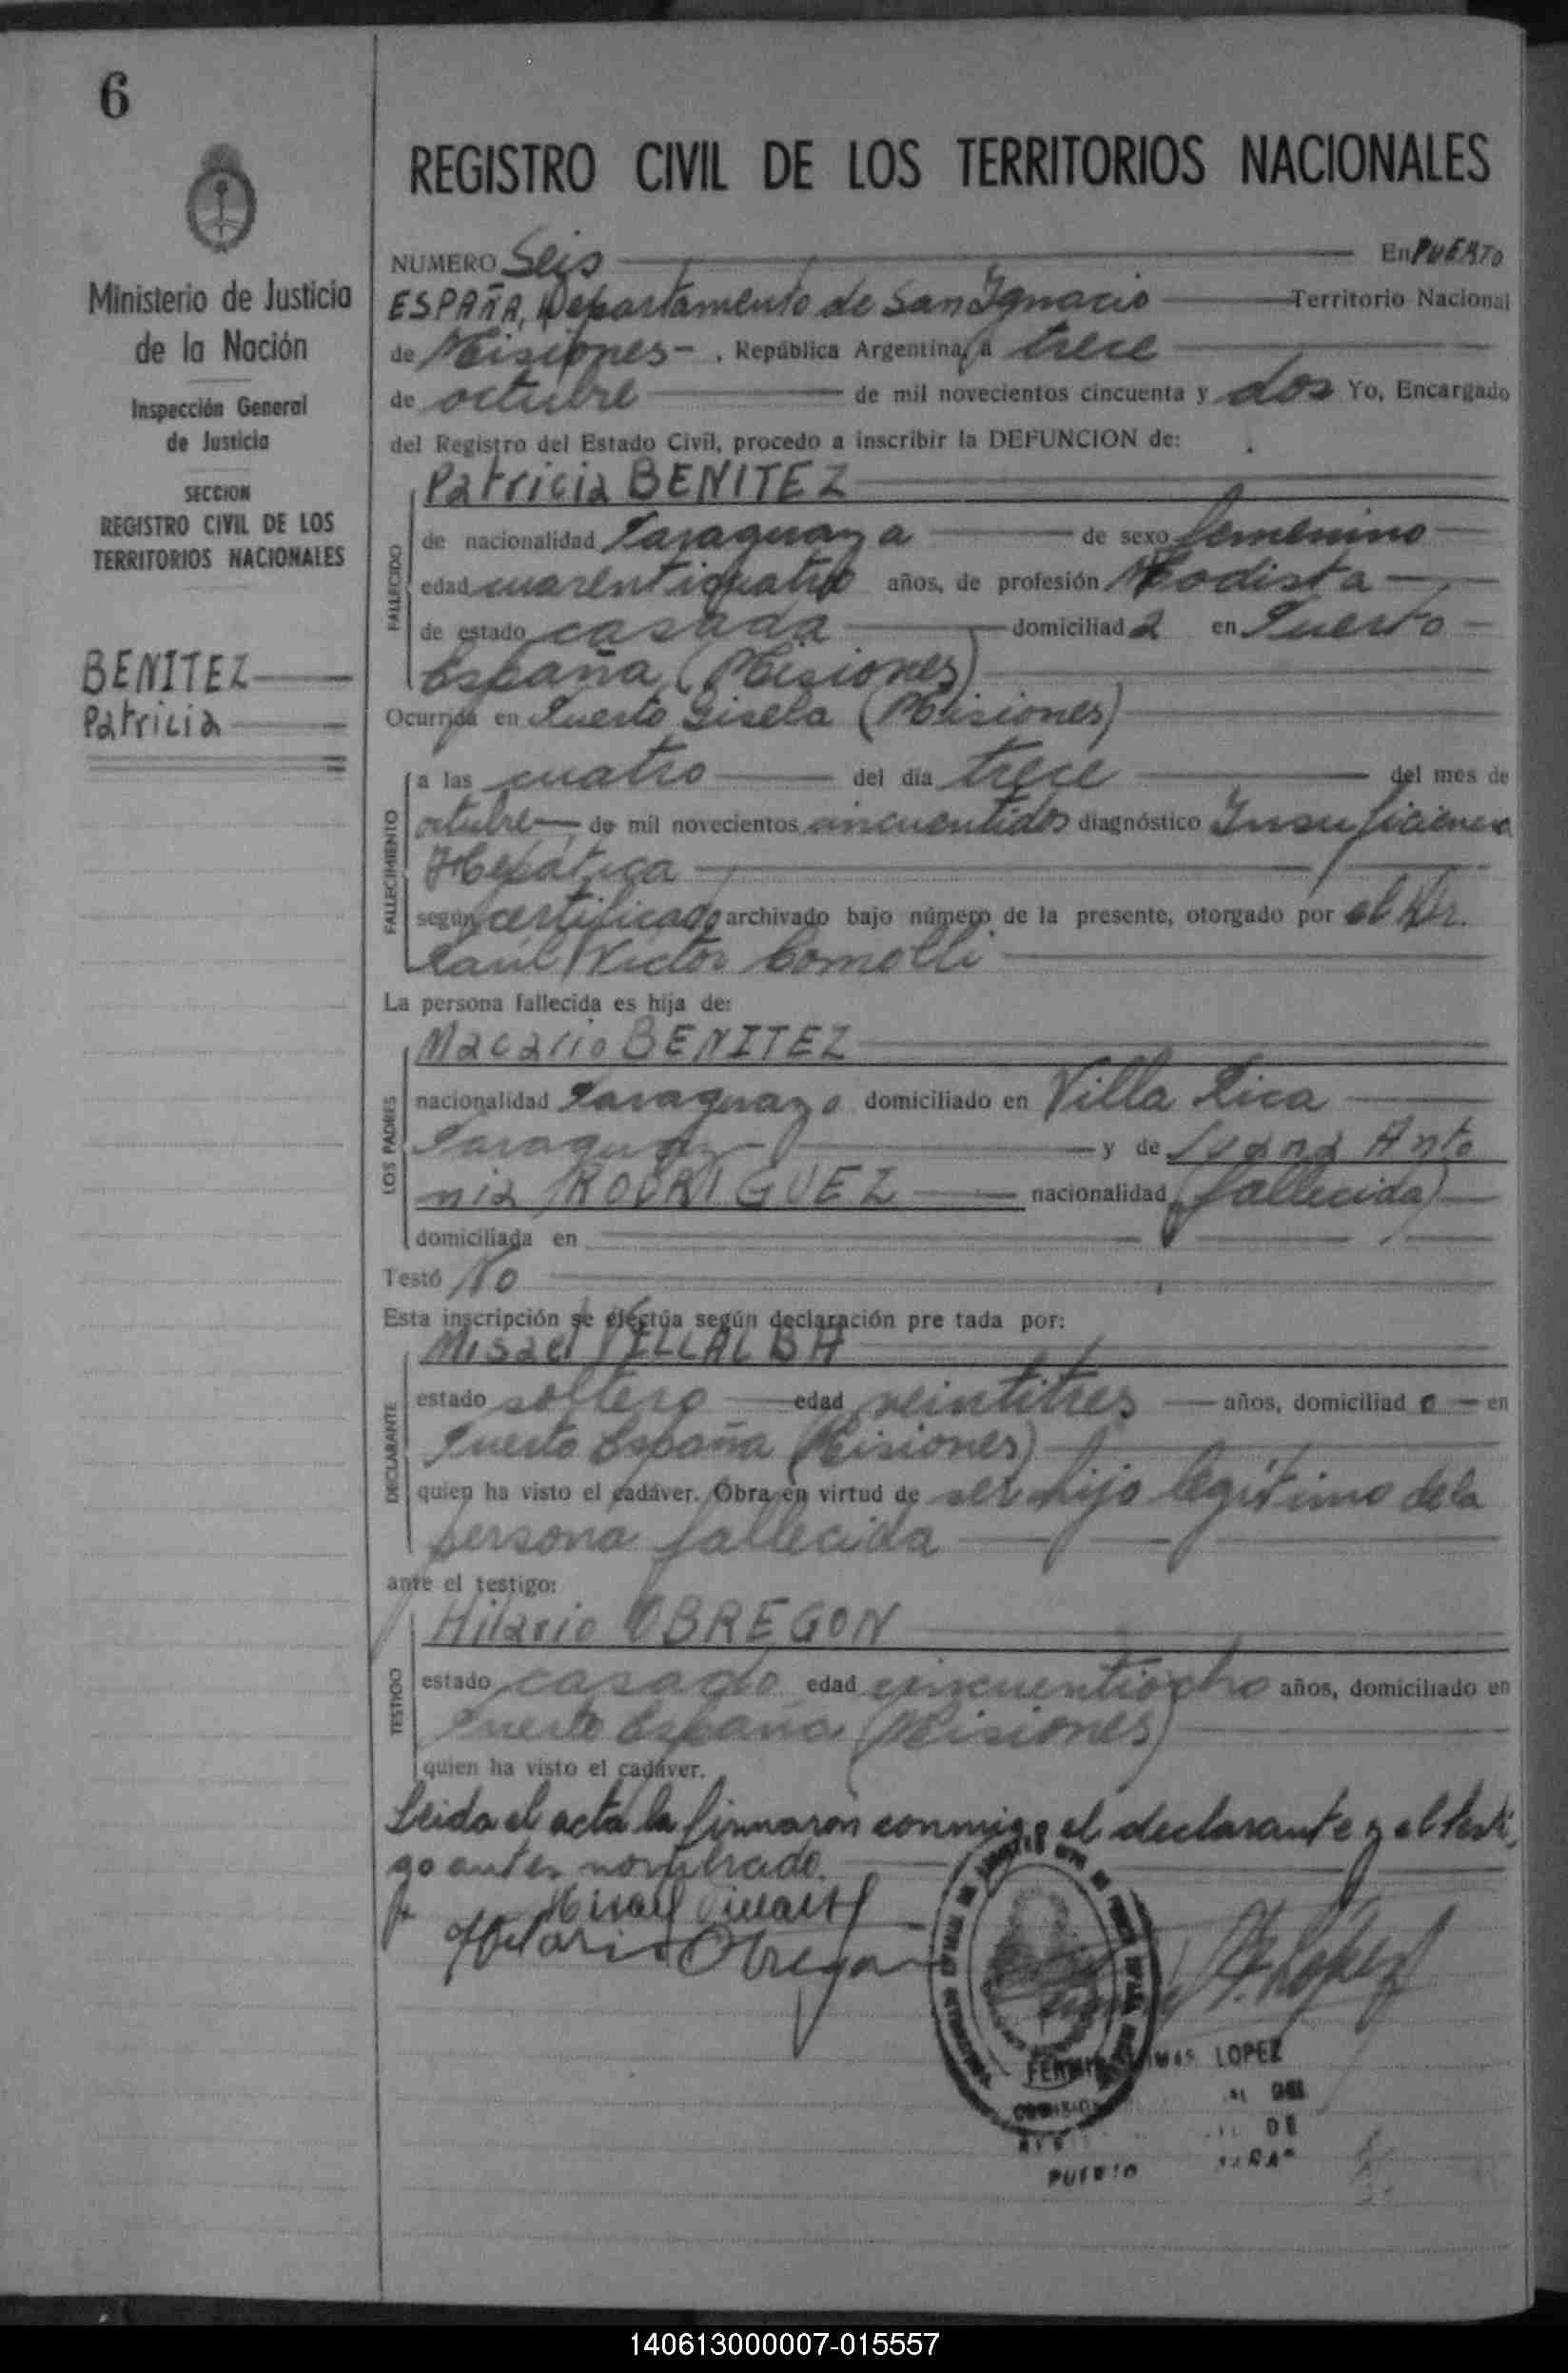 6
Ministerio de Justicia
de la Nación
Inspección General
de Justicia
SECCION
REGISTRO CIVIL DE LOS
TERRITORIOS NACIONALES
BENITEZ
Patricia
REGISTRO CIVIL DE LOS TERRITORIOS NACIONALES
NUMERO Seis En PUERTO
ESPAÑA, Departamento de San Ignacio Territorio Nacional
de Misiones - , República Argentina, a trece
de octubre de mil novecientos cincuenta y dos Yo, Encargado
del Registro del Estado Civil, procedo a inscribir la DEFUNCION de:
Patricia BENITEZ
FALLECIDO
de nacionalidad Paraguaya de sexo femenino
edad cuarenticuatro años, de profesión Modista
de estado casada domiciliad a en Puerto
España (Misiones)
Ocurrida en Puerto Gisela (Misiones)
FALLECIMIENTO
a las cuatro del día trece del mes de
octubre de mil novecientos cincuentidos diagnóstico Insuficiencia
Hepática
según certificado archivado bajo número de la presente, otorgado por el Dr.
Raúl Victor Comolli
La persona fallecida es hija de:
LOS PADRES
Macario BENITEZ
nacionalidad Paraguayo domiciliado en Villa Rica
Paraguay y de Juana Anto
nia RODRIGUEZ nacionalidad (fallecida)
domiciliada en
Testó No
Esta inscripción se efectúa según declaración pre tada por:
DECLARANTE
Misael VILLALBA
estado soltero edad veintitres años, domiciliad o en
Puerto España (Misiones)
quien ha visto el cadáver. Obra en virtud de ser hijo legítimo de la
persona fallecida
ante el testigo:
TESTIGO
Hilario OBREGON
estado casado edad cincuentiocho años, domiciliado en
Puerto España (Misiones)
quien ha visto el cadáver.
Leida el acta la firmaron conmigo el declarante y el testi
go antes nombrado.
Misael Villalba
Hilario Obregon
F. López
LOPEZ
PUERTO
140613000007-015557